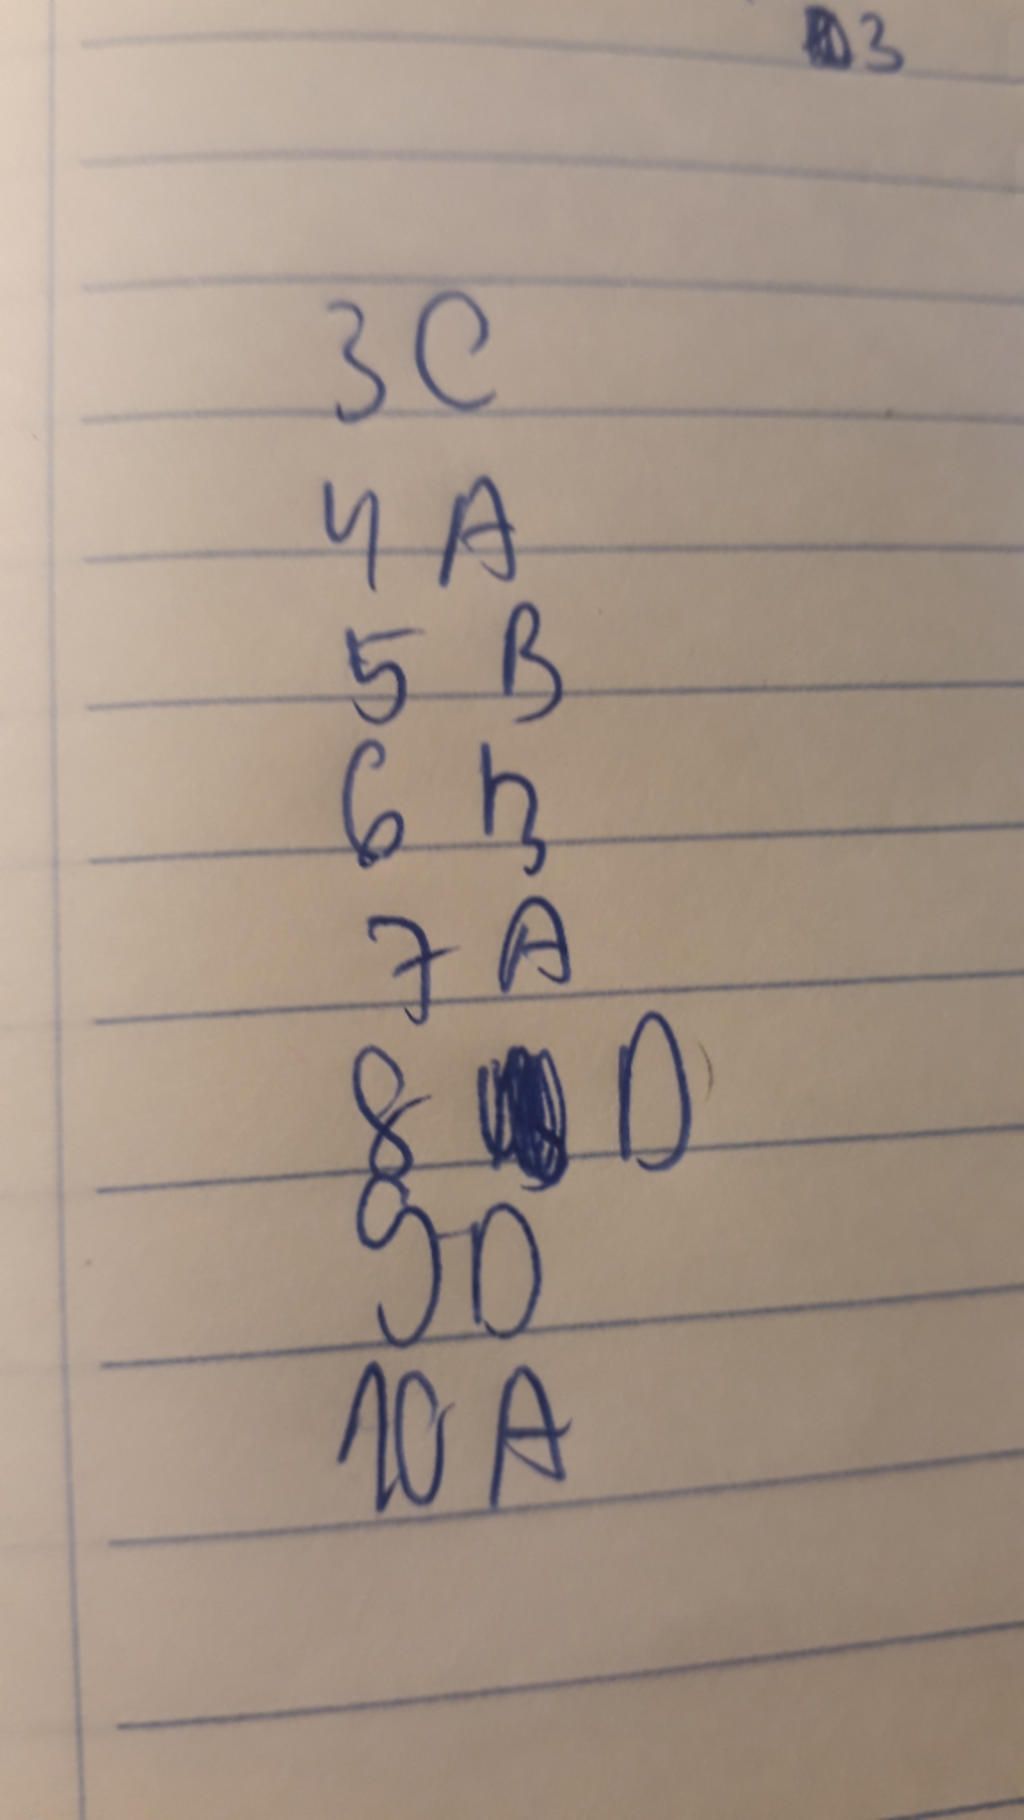 3
3 C
4 A
5 B
6 B
7 A
8 D
9 D
10 A